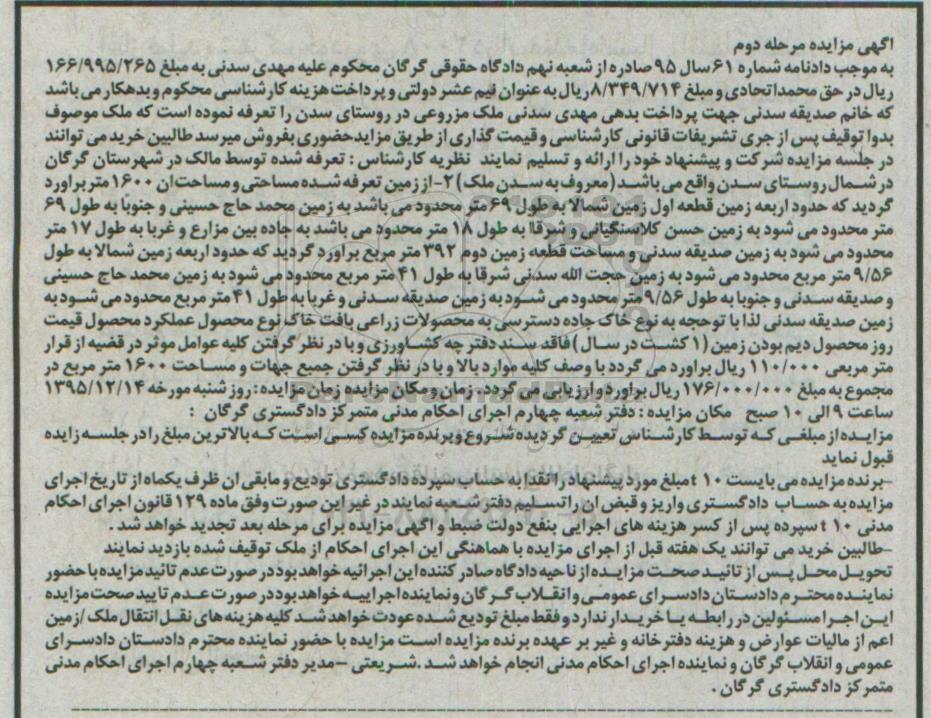 آگهی مزایده مرحله دوم
به موجب دادنامه شماره ۶۱ سال ۹۵ صادره از شعبه نهم دادگاه حقوقی گرگان محکوم علیه مهدی سدنی به مبلغ ۱۶۶/۹۹۵/۲۶۵
ریال در حق محمداتحادی و مبلغ ۸/۳۴۹/۷۱۴ ریال به عنوان نیم عشر دولتی و پرداخت هزینه کارشناسی محکوم وبدهکار می باشد
که خانم صدیقه سدنی جهت پرداخت بدهی مهدی سدنی ملک مزروعی در روستای سدن را تعرفه نموده است که ملک موصوف
بدوا توقیف پس از جری تشریفات قانونی کارشناسی و قیمت گذاری از طریق مزایدحضوری بفروش میرسد طالبین خرید می توانند
در جلسه مزایده شرکت و پیشنهاد خود را ارائه و تسلیم نمایند نظریه کارشناس : تعرفه شده توسط مالک در شهرستان گرگان
در شمال روستای سدن واقع می باشد (معروف به سدن ملک) ۲-از زمین تعرفه شده مساحتی و مساحت ان ۱۶۰۰ متر براورد
گردید که حدود اربعه زمین قطعه اول زمین شمالا به طول ۶۹ متر محدود می باشد به زمین محمد حاج حسینی و جنوبا به طول ۶۹
متر محدود می شود به زمین حسن کلاسنگیانی و شرقا به طول ۱۸ متر محدود می باشد به جاده بین مزارع و غربا به طول ۱۷ متر
محدود می شود به زمین صدیقه سدنی و مساحت قطعه زمین دوم ۳۹۲ متر مربع براورد گردید که حدود اربعه زمین شمالا به طول
۹/۵۶ متر مربع محدود می شود به زمین حجت الله سدنی شرقا به طول ۴۱ متر مربع محدود می شود به زمین محمد حاج حسینی
و صدیقه سدنی و جنوبا به طول ۹/۵۶ متر محدود می شود به زمین صدیقه سدنی و غربا به طول ۴۱ متر مربع محدود می شود به
زمین صدیقه سدنی لذا با توحجه به نوع خاک جاده دسترسی به محصولات زراعی بافت خاک نوع محصول عملکرد محصول قیمت
روز محصول دیم بودن زمین (۱ کشت در سال) فاقد سند دفترچه کشاورزی و با در نظر گرفتن کلیه عوامل موثر در قضیه از قرار
متر مربعی ۱۱۰/۰۰۰ ریال براورد می گردد با وصف کلیه موارد بالا و با در نظر گرفتن جمیع جهات و مساحت ۱۶۰۰ متر مربع در
مجموع به مبلغ ۱۷۶/۰۰۰/۰۰۰ ریال براورد وارزیابی می گردد. زمان ومکان مزایده زمان مزایده : روز شنبه مورخه ۱۳۹۵/۱۲/۱۴
ساعت ۹ الی ۱۰ صبح مکان مزایده : دفتر شعبه چهارم اجرای احکام مدنی متمرکز دادگستری گرگان :
مزایده از مبلغی که توسط کارشناس تعیین گردیده شروع وبرنده مزایده کسی است که بالاترین مبلغ را در جلسه زایده
قبول نماید
-برنده مزایده می بایست ۱۰ t مبلغ مورد پیشنهاد را نقدا به حساب سپرده دادگستری تودیع و مابقی ان ظرف یکماه از تاریخ اجرای
مزایده به حساب دادگستری واریز و قبض ان را تسلیم دفتر شعبه نمایند در غیر این صورت وفق ماده ۱۲۹ قانون اجرای احکام
مدنی ۱۰ t سپرده پس از کسر هزینه های اجرایی بنفع دولت ضبط و اگهی مزایده برای مرحله بعد تجدید خواهد شد .
-طالبین خرید می توانند یک هفته قبل از اجرای مزایده با هماهنگی این اجرای احکام از ملک توقیف شده بازدید نمایند
تحویل محل پس از تائید صحت مزایده از ناحیه دادگاه صادر کننده این اجرائیه خواهد بود در صورت عدم تائید مزایده با حضور
نماینده محترم دادستان دادسرای عمومی و انقلاب گرگان و نماینده اجراییه خواهد بود در صورت عدم تایید صحت مزایده
این اجرا مسئولین در رابطه با خریدار ندارد و فقط مبلغ تودیع شده عودت خواهد شد. کلیه هزینه های نقل انتقال ملک /زمین
اعم از مالیات عوارض و هزینه دفترخانه و غیر بر عهده برنده مزایده است مزایده با حضور نماینده محترم دادستان دادسرای
عمومی و انقلاب گرگان و نماینده اجرای احکام مدنی انجام خواهد شد .شریعتی -مدیر دفتر شعبه چهارم اجرای احکام مدنی
متمرکز دادگستری گرگان .